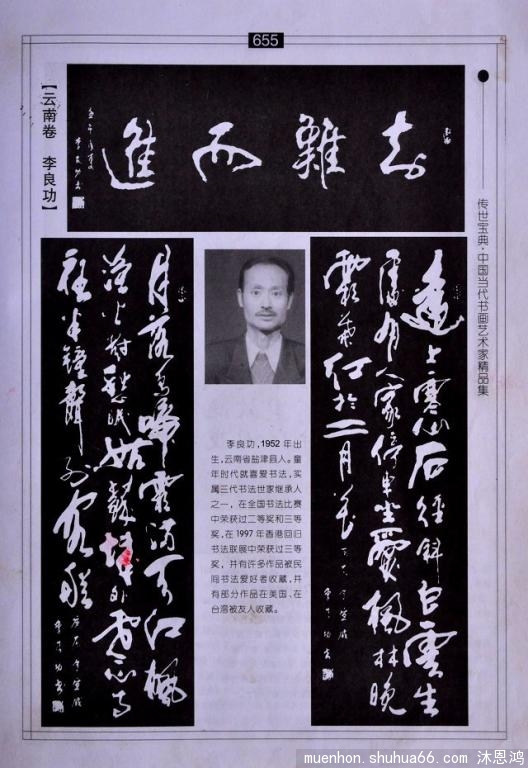 655
传世宝典·中国当代书画艺术家精品集
【云南卷 李良功】
知難而進
李良功書
遠上寒山石徑斜白雲生
處有人家停車坐愛楓林晚
霜葉紅於二月花
李良功書
月落烏啼霜滿天江楓
漁火對愁眠姑蘇城外寒山寺
夜半鐘聲到客船
李良功書
李良功，1952年出
生，云南省盐津县人。童
年时代就喜爱书法，实
属三代书法世家继承人
之一，在全国书法比赛
中荣获过二等奖和三等
奖，在1997年香港回归
书法联展中荣获过三等
奖，并有许多作品被民
间书法爱好者收藏，并
有部分作品在美国、在
台湾被友人收藏。
muenhon.shuhua66.com 沐恩鸿